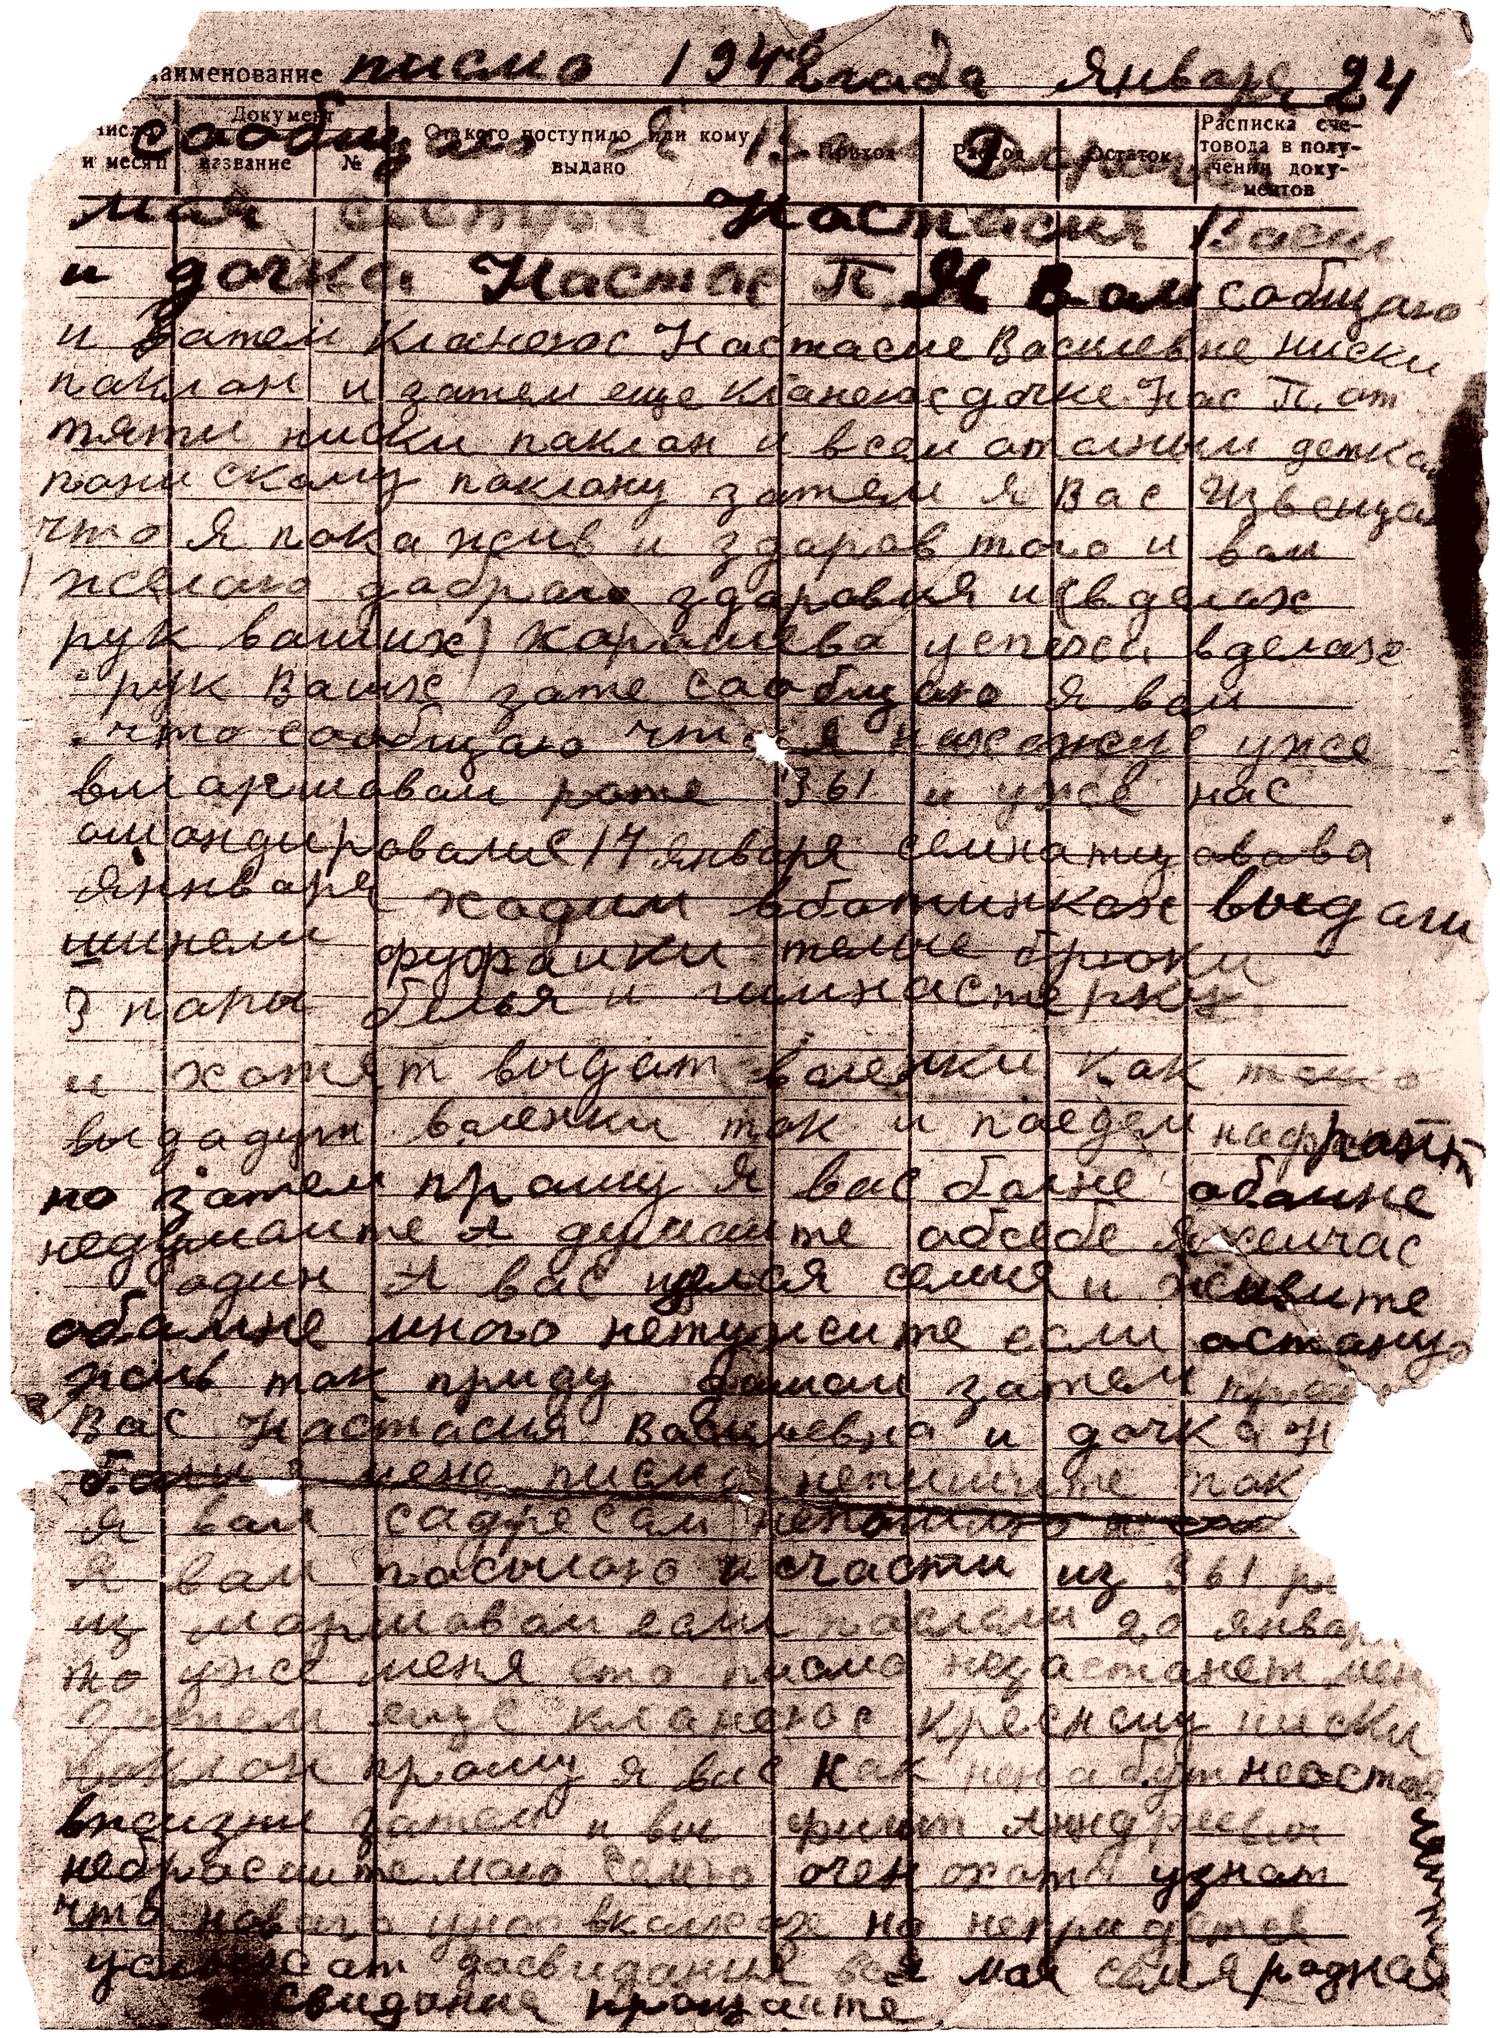 Наименование писмо 1942 года Января 24
Число и месяц Документ название № От кого поступило или кому выдано Приход Расход Остаток Расписка счетовода в получении документов
сообщаю Я Вам
мая сестра Настасия Васил
и дочка Настас П Я вам собщаю
и Затем Кланеюс Настасие Василевне ниски
паклон и затем еще кланеюс дочке Нас П. от
тяти ниски паклон и всем отолным деткам
пони скому паклону затем я Вас Извещаю
что Я пока жив и здаров того и вам
желаю даброго здаровия и (в делах
рук ваших) харашева успеха вделах
рук Ваших зате саобщаю я вам
что сообщаю что я нахожус уже
вмаршавам роте 361 и уже нас
амандировалис 17 января семнатцатава
яннваря хадим вботинках выдали
шинели фуфаики теплые брюки
3 пары белья и гимнастерку
и хотят выдат валенки как толко
выдадут валенки так и паедем нафронт
но затем прашу я вас болне обомне
недумаите А думаите обсебе я сеичас
один А вас целая семия и живите
обамне много нетужите если астанус
жив так приду дамои затем прошу
Вас Настасия Василевна и дочка Н
болш мене писма непишите так
я вам садресам непошлю
я вам посылаю исчасти из 361 р
из маршавои если паслали 20 январ
то уже меня ето писмо незастанет мен
Затем еще кланеюс Кресному ниски
паклон прашу я вас как ненабут неостав
вжизни затем и вы Филип Андреевич
небрасаите маю семю очен охота узнат
что новаго унас вколхозе но непридетса
услышат досвидания вся моя семя родная
свидания прощаите